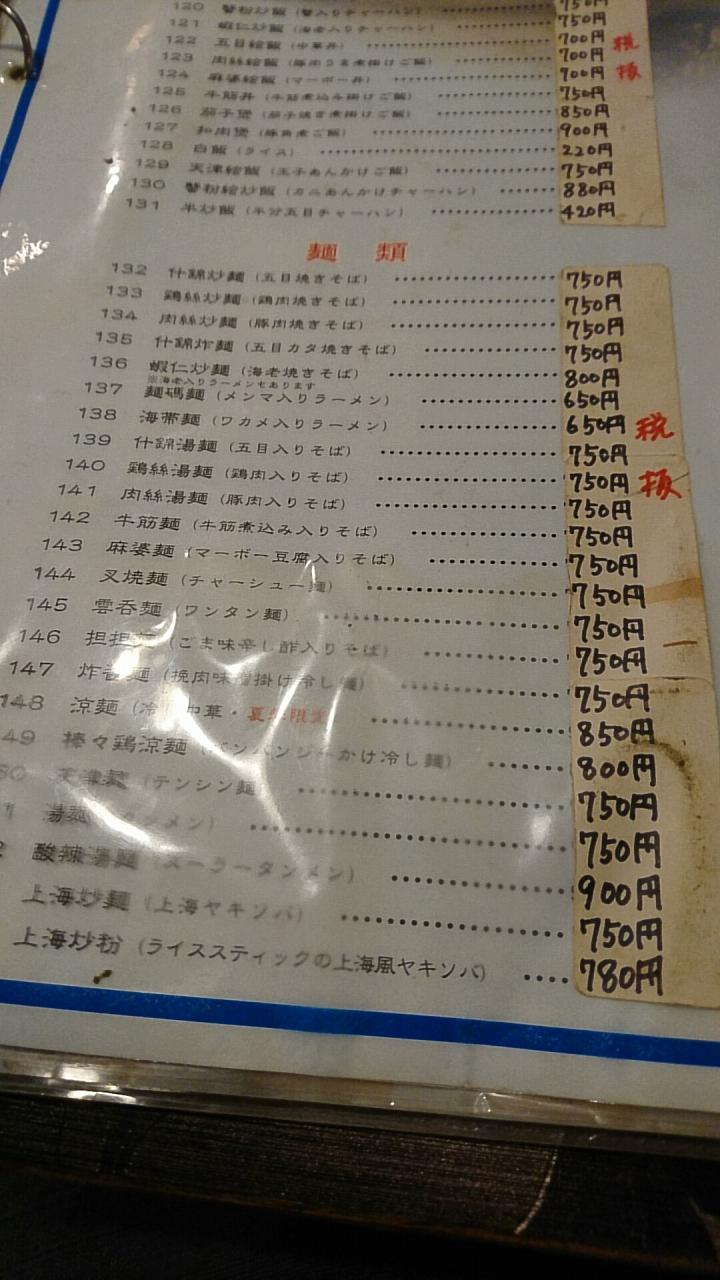 120 蟹粉炒飯 (蟹入りチャーハン) 750円
121 蝦仁炒飯 (海老入りチャーハン) 750円
122 五目絵飯 (中華丼) 700円 税
123 肉絲絵飯 (豚肉うま煮掛けご飯) 700円
124 麻婆絵飯 (マーボー丼) 700円 抜
125 牛筋丼 (牛筋煮込み掛けご飯) 750円
126 茄子煲 (茄子 煮掛けご飯) 850円
127 和肉煲 (豚角煮ご飯) 900円
128 白飯 (ライス) 220円
129 天津絵飯 (玉子あんかけご飯) 750円
130 蟹粉絵炒飯 (カニあんかけチャーハン) 880円
131 半炒飯 (半分五目チャーハン) 420円
麺 類
132 什錦炒麺 (五目焼きそば) 750円
133 鶏絲炒麺 (鶏肉焼きそば) 750円
134 肉絲炒麺 (豚肉焼きそば) 750円
135 什錦炸麺 (五目カタ焼きそば) 750円
136 蝦仁炒麺 (海老焼きそば) 800円
※海老入りラーメンもあります
137 麺碼麺 (メンマ入りラーメン) 650円
138 海帯麺 (ワカメ入りラーメン) 650円 税
139 什錦湯麺 (五目入りそば) 750円
140 鶏絲湯麺 (鶏肉入りそば) 750円 抜
141 肉絲湯麺 (豚肉入りそば) 750円
142 牛筋麺 (牛筋煮込み入りそば) 750円
143 麻婆麺 (マーボー豆腐入りそば) 750円
144 叉焼麺 (チャーシュー麺) 750円
145 雲呑麺 (ワンタン麺) 750円
146 担担麺 (ごま味辛し酢入りそば) 750円
147 炸香麺 (挽肉味噌掛け冷し麺) 750円
148 涼麺 (冷し中華・夏季限定) 850円
49 棒々鶏涼麺 (バンバンジーかけ冷し麺) 800円
50 天津麺 (テンシン麺) 750円
1 湯麺 (タンメン) 750円
2 酸辣湯麺 (スーラータンメン) 900円
上海炒麺 (上海ヤキソバ) 750円
上海炒粉 (ライススティックの上海風ヤキソバ) 780円